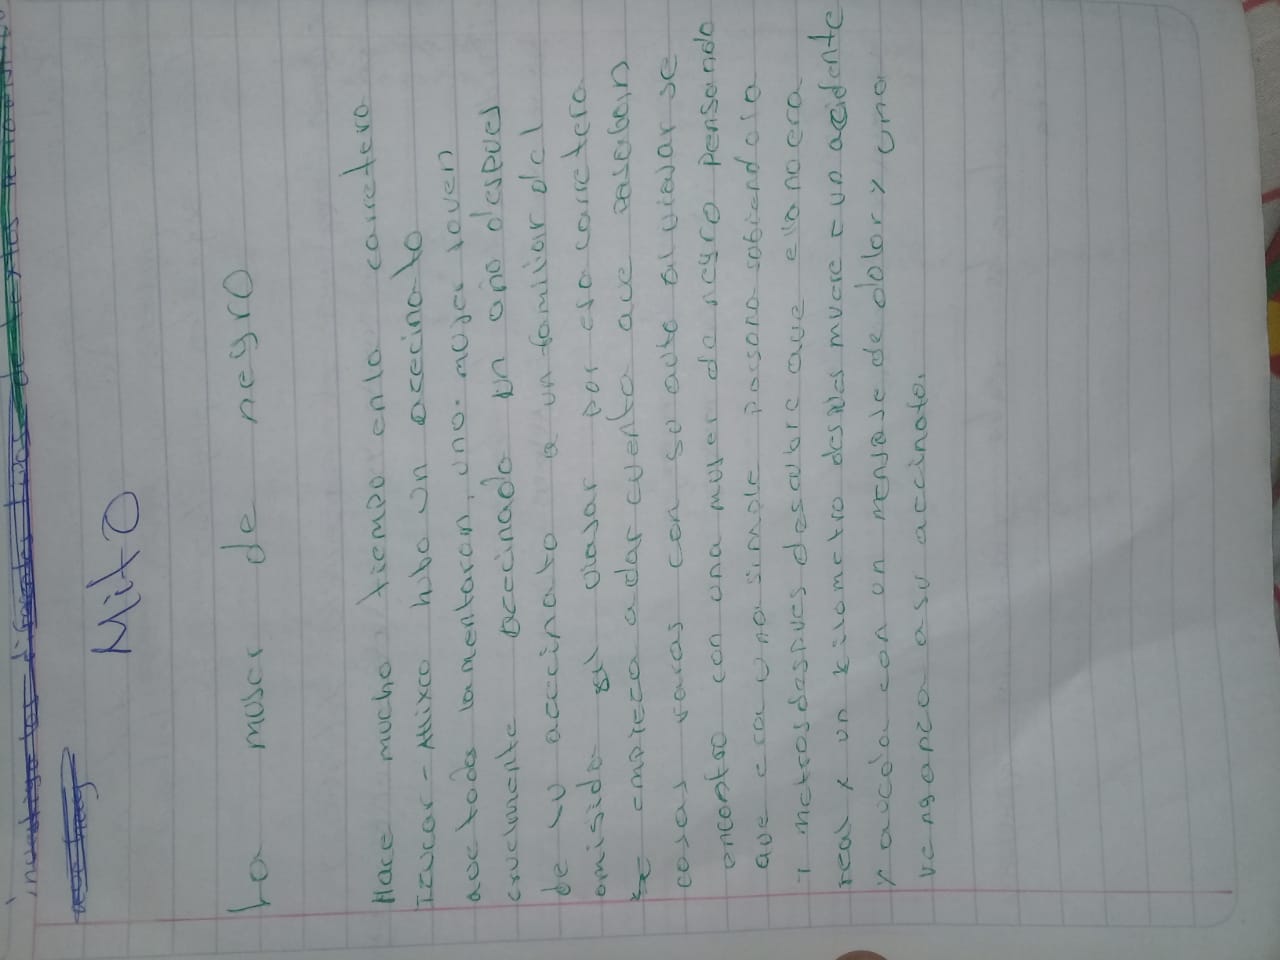 Mito
La muser de negro
Hace mucho tiempo en la carretera
Izucar - Atlixco hubo un accecinato
que todos lamentaran, una muser joven
cruelmente accecinada un año despues
de su accecinato a un familiar del
omisida al viajar por esa carretera
empieza a dar cuenta que pasaban
cosas raras con su auto al viajar se
encontro con una muser de negro pensando
que era una simple persona sabiendola
1 metros despues descubre que ella no era
real y un kilometro despues muere e un accidente
y queda con un mensaje de dolor y una
venganza a su accinato.